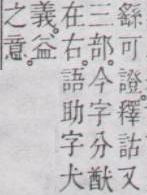 繇可證。釋詁又
三部。今字分猷
在右。語助字犬
義。益
之意。